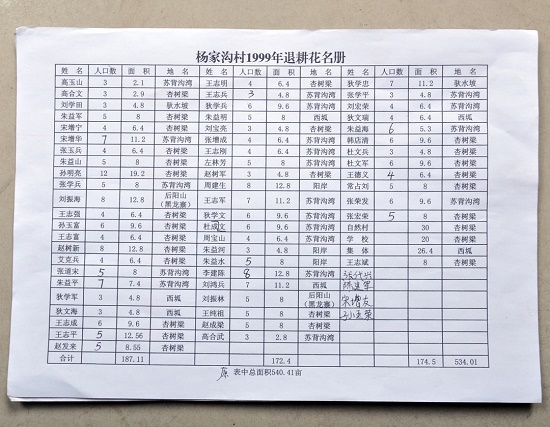 杨家沟村1999年退耕花名册
姓 名 人口数 面 积 地 名 姓 名 人口数 面 积 地 名 姓 名 人口数 面 积 地 名
高玉山 3 2.1 苏背沟湾 王志明 4 6.4 杏树梁 狄学忠 7 11.2 狄水坡
高合文 3 2.9 杏树梁 王志兵 3 4.8 苏背沟湾 张学平 3 4.8 苏背沟湾
刘学田 3 4.8 狄水坡 狄学兵 6 9.6 苏背沟湾 刘宏荣 4 6.4 苏背沟湾
朱益军 5 8 杏树梁 朱益明 5 8 西坬 狄文瑞 4 6.4 西坬
宋增宁 4 6.4 杏树梁 刘宝亮 3 4.8 杏树梁 朱益海 6 5.3 苏背沟湾
宋增华 7 11.2 苏背沟湾 张增成 4 6.4 苏背沟湾 韩店清 6 9.6 杏树梁
张玉兵 4 6.4 杏树梁 王志刚 4 6.4 苏背沟湾 杜文兵 3 4.8 苏背沟湾
朱益山 5 8 杏树梁 左林芳 5 8 苏背沟湾 杜文军 6 9.6 苏背沟湾
孙明亮 12 19.2 杏树梁 赵树军 3 4.8 苏背沟湾 王德义 4 6.4 杏树梁
张学兵 5 8 苏背沟湾 周建生 8 12.8 阳岸 常占刘 5 8 杏树梁
刘振海 8 12.8 后阳山(黑龙寨) 王志军 7 11.2 苏背沟湾 张荣发 6 9.6 苏背沟湾
王志强 4 6.4 杏树梁 狄学文 6 9.6 杏树梁 张宏荣 5 8 杏树梁
孙玉富 6 9.6 杏树梁 杜成文 6 9.6 苏背沟湾 自然村 30 杏树梁
王志富 4 6.4 杏树梁 周宝山 4 6.4 苏背沟湾 学 校 20 杏树梁
赵树新 8 12.8 杏树梁 朱益河 3 4.8 阳岸 集 体 26.4 西坬
艾克兵 4 6.4 杏树梁 朱益水 5 8 阳岸 王志斌 8 杏树梁
张道宋 5 8 苏背沟湾 李建陈 8 12.8 苏背沟湾
朱益平 7 7.4 苏背沟湾 刘鸿兵 7 11.2 西坬
狄学军 3 4.8 西坬 刘振林 5 8 后阳山(黑龙寨) 宋增友
狄文海 3 4.8 西坬 王纯祖 5 8 杏树梁
王志成 6 9.6 杏树梁 赵成梁 5 8 杏树梁
王志平 5 12.56 杏树梁 高合武 3 2.8 苏背沟湾
赵发来 5 8.55 杏树梁
合计 187.11 172.4 174.5 534.01
原 表中总面积540.41亩